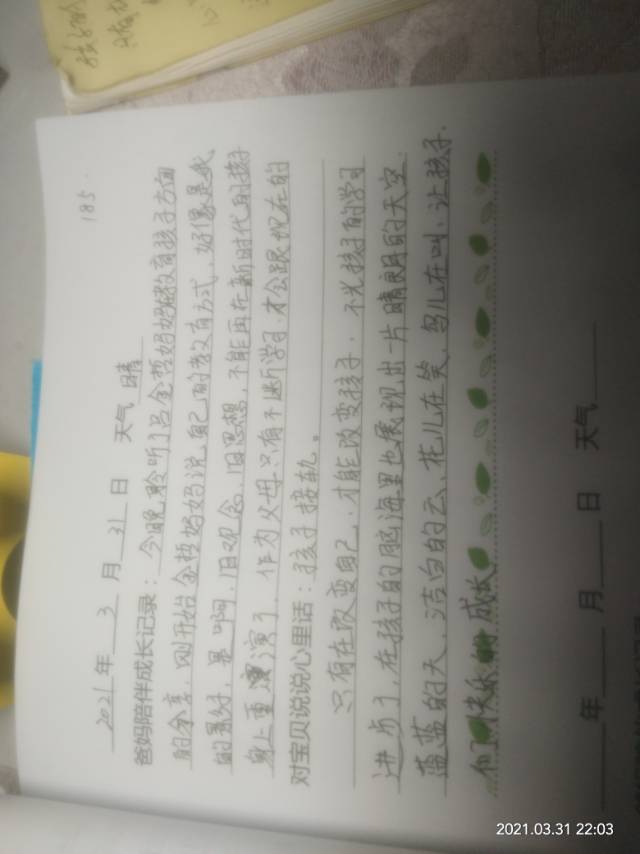 185.
2021年 3 月 31 日 天气 晴
爸妈陪伴成长记录：今晚聆听了吕金哲妈妈教育孩子方面
的分享，刚开始金哲妈妈说，自己的教育方式，好像是我
的系列，是啊，旧观念，旧思想，不能再在新时代的孩子
身上重演了，作为父母只有不断学习，才会跟现在的
对宝贝说说心里话：孩子接轨。
只有在改变自己，才能改变孩子，不光孩子的学习
进步了，在孩子的脑海里也展现出一片晴朗的天空
蓝蓝的天，洁白的云，花儿在笑，鸟儿在叫，让孩子
们快乐的成长
年 月 日 天气
2021.03.31 22:03